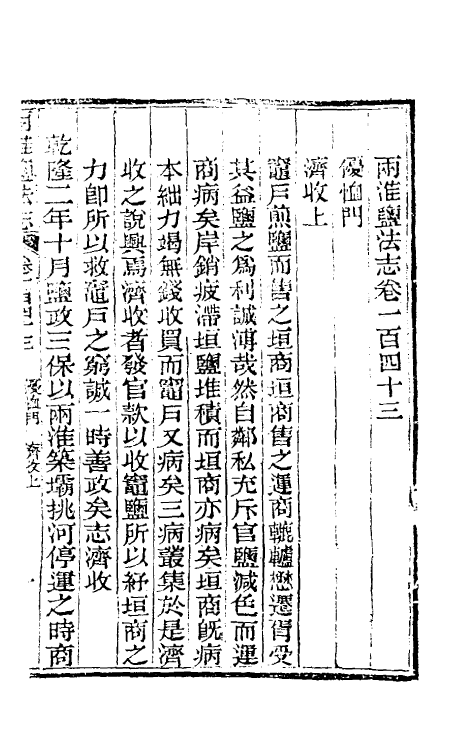 兩淮鹽法志卷一百四十三
優恤門
濟收上
竈戶煎鹽而售之垣商垣商售之運商轆轤懋遷胥受
其益鹽之爲利誠溥哉然自鄰私充斥官鹽減色而運
商病矣岸銷疲滯垣鹽堆積而垣商亦病矣垣商既病
本絀力竭無錢收買而竈戶又病矣三病叢集於是濟
收之說興焉濟收者發官款以收竈鹽所以紓垣商之
力卽所以救竈戶之窮誠一時善政矣志濟收
乾隆二年十月鹽政三保以兩淮築壩挑河停運之時商
兩淮鹽法志 卷一百四十三 優恤門 濟收上